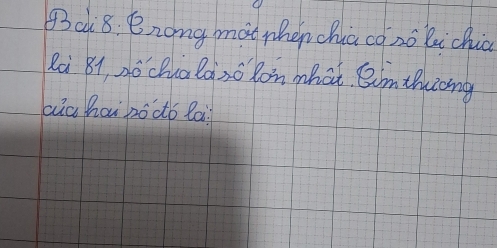 Bài 8: Trong một phép chia có số bị chia
là 81, số chia là số lớn nhất. Tìm thương
của hai số đó là: